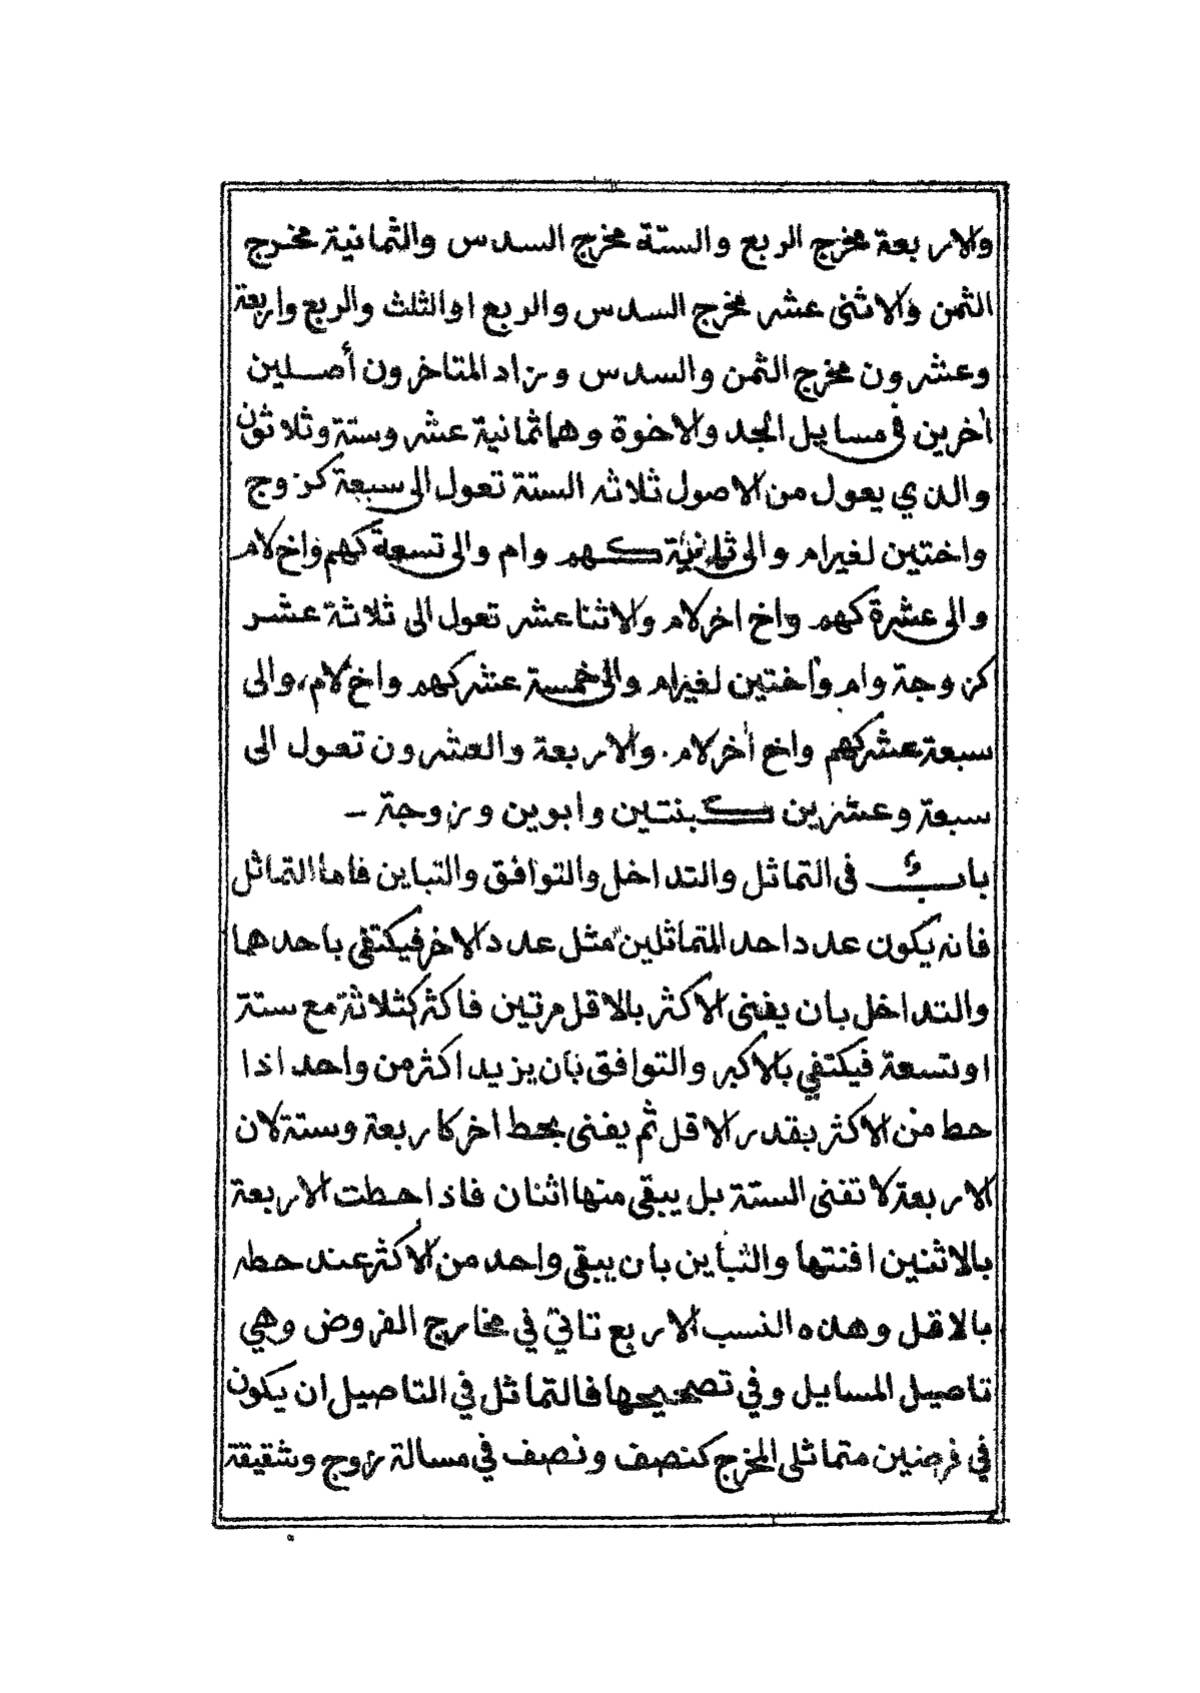 والاربعة مخرج الربع والستة مخرج السدس والثمانية مخرج
الثمن والاثنى عشر مخرج السدس والربع اوالثلث والربع واربعة
وعشرون مخرج الثمن والسدس وزاد المتاخرون أصلين
اخرين فى مسايل الجد والاخوة وهما ثمانية عشر وستة وثلاثون
والذي يعول من الاصول ثلاثه الستة تعول الى سبعة كزوج
واختين لغيرام والى ثمانية كهم وام والى تسعة كهم واخ لام
والى عشرة كهم واخ اخرلام والاثنا عشر تعول الى ثلاثة عشر
كزوجة وام واختين لغيرام والى خمسة عشر كهم واخ لام، والى
سبعة عشر كهم واخ اخرلام. والاربعة والعشرون تعول الى
سبعة وعشرين كبنتين وابوين وزوجة –
باب فى التماثل والتداخل والتوافق والتباين فاما التماثل
فانه يكون عدد احد المتماثلين مثل عدد الاخر فيكتفى باحدهما
والتداخل بان يفنى الاكثر بالاقل مرتين فاكثر كثلاثة مع ستة
اوتسعة فيكتفي بالاكبر والتوافق بان يزيد اكثر من واحد اذا
حط من الاكثر بقدر الاقل ثم يفنى بحط اخر كاربعة وستة لان
الاربعة لا تفنى الستة بل يبقى منها اثنان فاذا حطت الاربعة
بالاثنين افنتها والتباين بان يبقى واحد من الاكثر عند حطه
بالاقل وهذه النسب الاربع تاتي في مخارج الفروض وهي
تاصيل المسايل وفي تصحيحها فالتماثل في التاصيل ان يكون
في فرضين متماثلى المخرج كنصف ونصف في مسالة زوج وشقيقة